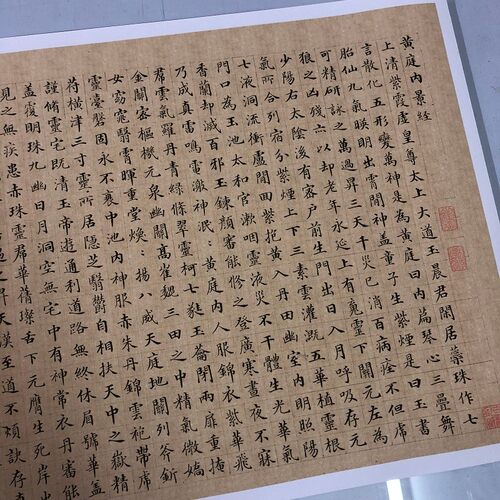 黄庭内景經
上清紫霞虛皇尊太上大道玉晨君閑居蘂珠作七
言散化五形變萬神是為黄庭曰内篇琴心三疊舞
胎仙九氣暎明出霄間神蓋童子生紫煙是曰玉書
可精研詠之萬過昇三天千災已消百病痊不憚虎
狼之凶殘亦以却老年永延上有䰟靈下關元左為
少陽右太陰後有密户前生門出日入月呼吸存元
氣所合列宿分紫煙上下三素雲灌溉五華植靈根
七液洞流衝廬間回紫抱黄入丹田幽室内明照陽
門口為玉池太和官漱咽靈液災不干體生光華氣
香蘭却滅百邪玉鍊顏審能修之登廣寒晝夜不寐
乃成真雷鳴電激神泯:黄庭内人服錦衣紫華飛
羣雲氣羅丹青緑條翠靈柯七蕤玉籥閉兩扉重掩
金關密樞機元泉幽關高崔巍三田之中精氣微嬌
女窈窕翳霄暉重堂煥:揚八威天庭地關列斧斤
靈臺盤固永不衰中池内神服赤朱丹錦雲袍帶虎
符横津三寸靈所居隱芝翳鬱自相扶天中之嶽精
謹修靈宅既清玉帝遊通利道路無終休眉號華
蓋覆明珠九幽日月洞空無宅中有神常衣丹審能
見之無疾患赤珠靈羣華蒨璨舌下元膺生死岸出
遇之昇天漢至道不煩訣存真